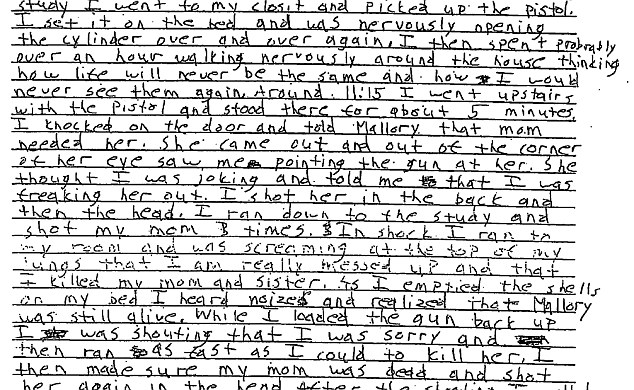 study I went to my closit and picked up the pistol.
I set it on the bed and was nervously opening
the cylinder over and over again, I then spent probably
over an hour walking nervously around the house thinking
how life will never be the same and how I would
never see them again. Around 11:15 I went upstairs
with the pistol and stood there for about 5 minutes.
I knocked on the door and told Mallory that mom
needed her. She came out and out of the corner
of her eye saw me pointing the gun at her. She
thought I was joking and told me that I was
freaking her out. I shot her in the back and
then the head. I ran down to the study and
shot my mom 3 times. In shock I ran to
my room and was screaming at the top of my
lungs that I am really messed up and that
I killed my mom and sister. As I emptied the shells
on my bed I heard noizes and realized that Mallory
was still alive. While I loaded the gun back up
I was shouting that I was sorry and
then ran as fast as I could to kill her. I
then made sure my mom was dead and shot
her again in the head After the